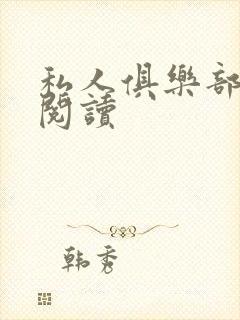 私人俱樂部
閱讀
韩秀